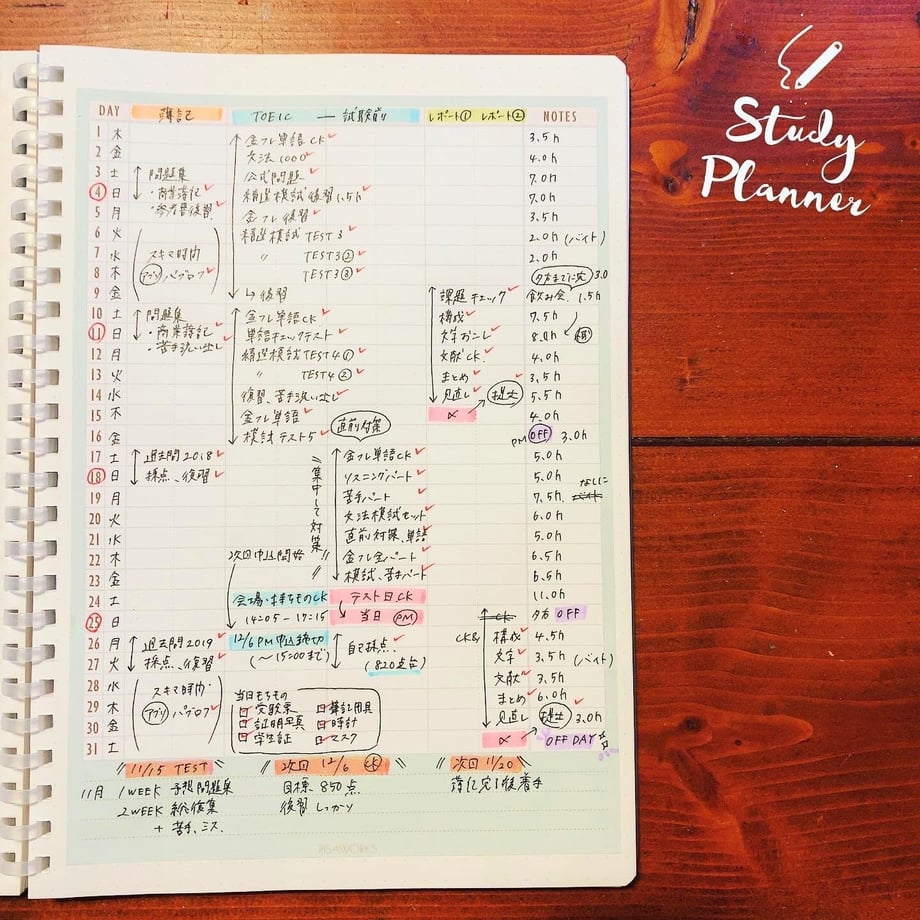 Study
Planner
DAY 簿記 TOEIC — 試験前 レポート① レポート② NOTES
1 木 金フレ単語CK 3.5h
2 金 文法1000 4.0h
3 土 問題集 公式問題 7.0h
4 日 ・商業簿記 精選模試復習1.5h 7.0h
5 月 ・参考書復習 金フレ復習 3.5h
6 火 精選模試TEST3 2.0h (バイト)
7 水 スキマ時間 〃 TEST3② 2.0h
8 木 アプリ パブロフ TEST3③ 夕方までに完 3.0
9 金 ↳復習 課題チェック 飲み会 1.5h
10 土 問題集 金フレ単語CK 構成 7.5h
11 日 ・商業簿記 単語チェックテスト 文字おこし 8.0h
12 月 ・苦手洗い出し 精選模試TEST4① 文献CK 4.0h
13 火 〃 TEST4② まとめ 3.5h
14 水 復習、苦手洗い出し 見直し 提出 5.5h
15 木 金フレ単語 〆 4.0h
16 金 模試テスト5 直前対策 PM OFF 3.0h
17 土 過去問2018 金フレ単語CK 5.0h
18 日 採点、復習 リスニングパート 5.0h
19 月 苦手パート 7.5h なしに バイト
20 火 文法模試セット 6.0h
21 水 直前対策、単語 5.0h
集中して対策!!
22 木 次回申込開始 金フレ全パート 6.5h
23 金 模試、苦手パート 6.5h
24 土 会場・持ちものCK テスト日CK 11.0h
25 日 14:05-17:15 当日 PM CK 夕方 OFF
26 月 過去問2019 12/6PM申込締切 自己採点 CK& 構成 4.5h
27 火 採点、復習 (〜15:00まで) (820点台) 文字 3.5h (バイト)
28 水 スキマ時間 文献 3.5h
29 木 アプリ パブロフ 当日もちもの まとめ 6.0h
受験票 筆記用具
30 金 証明写真 時計 見直し 提出 3.0h
31 土 学生証 マスク 〆 OFF DAY
11/15 TEST 次回 12/6 CK 次回 11/20
11月 1WEEK 予想問題集 目標 850点 簿記完了後着手
2WEEK 総復集 復習しっかり
+ 苦手、ミス
PISAWORKS